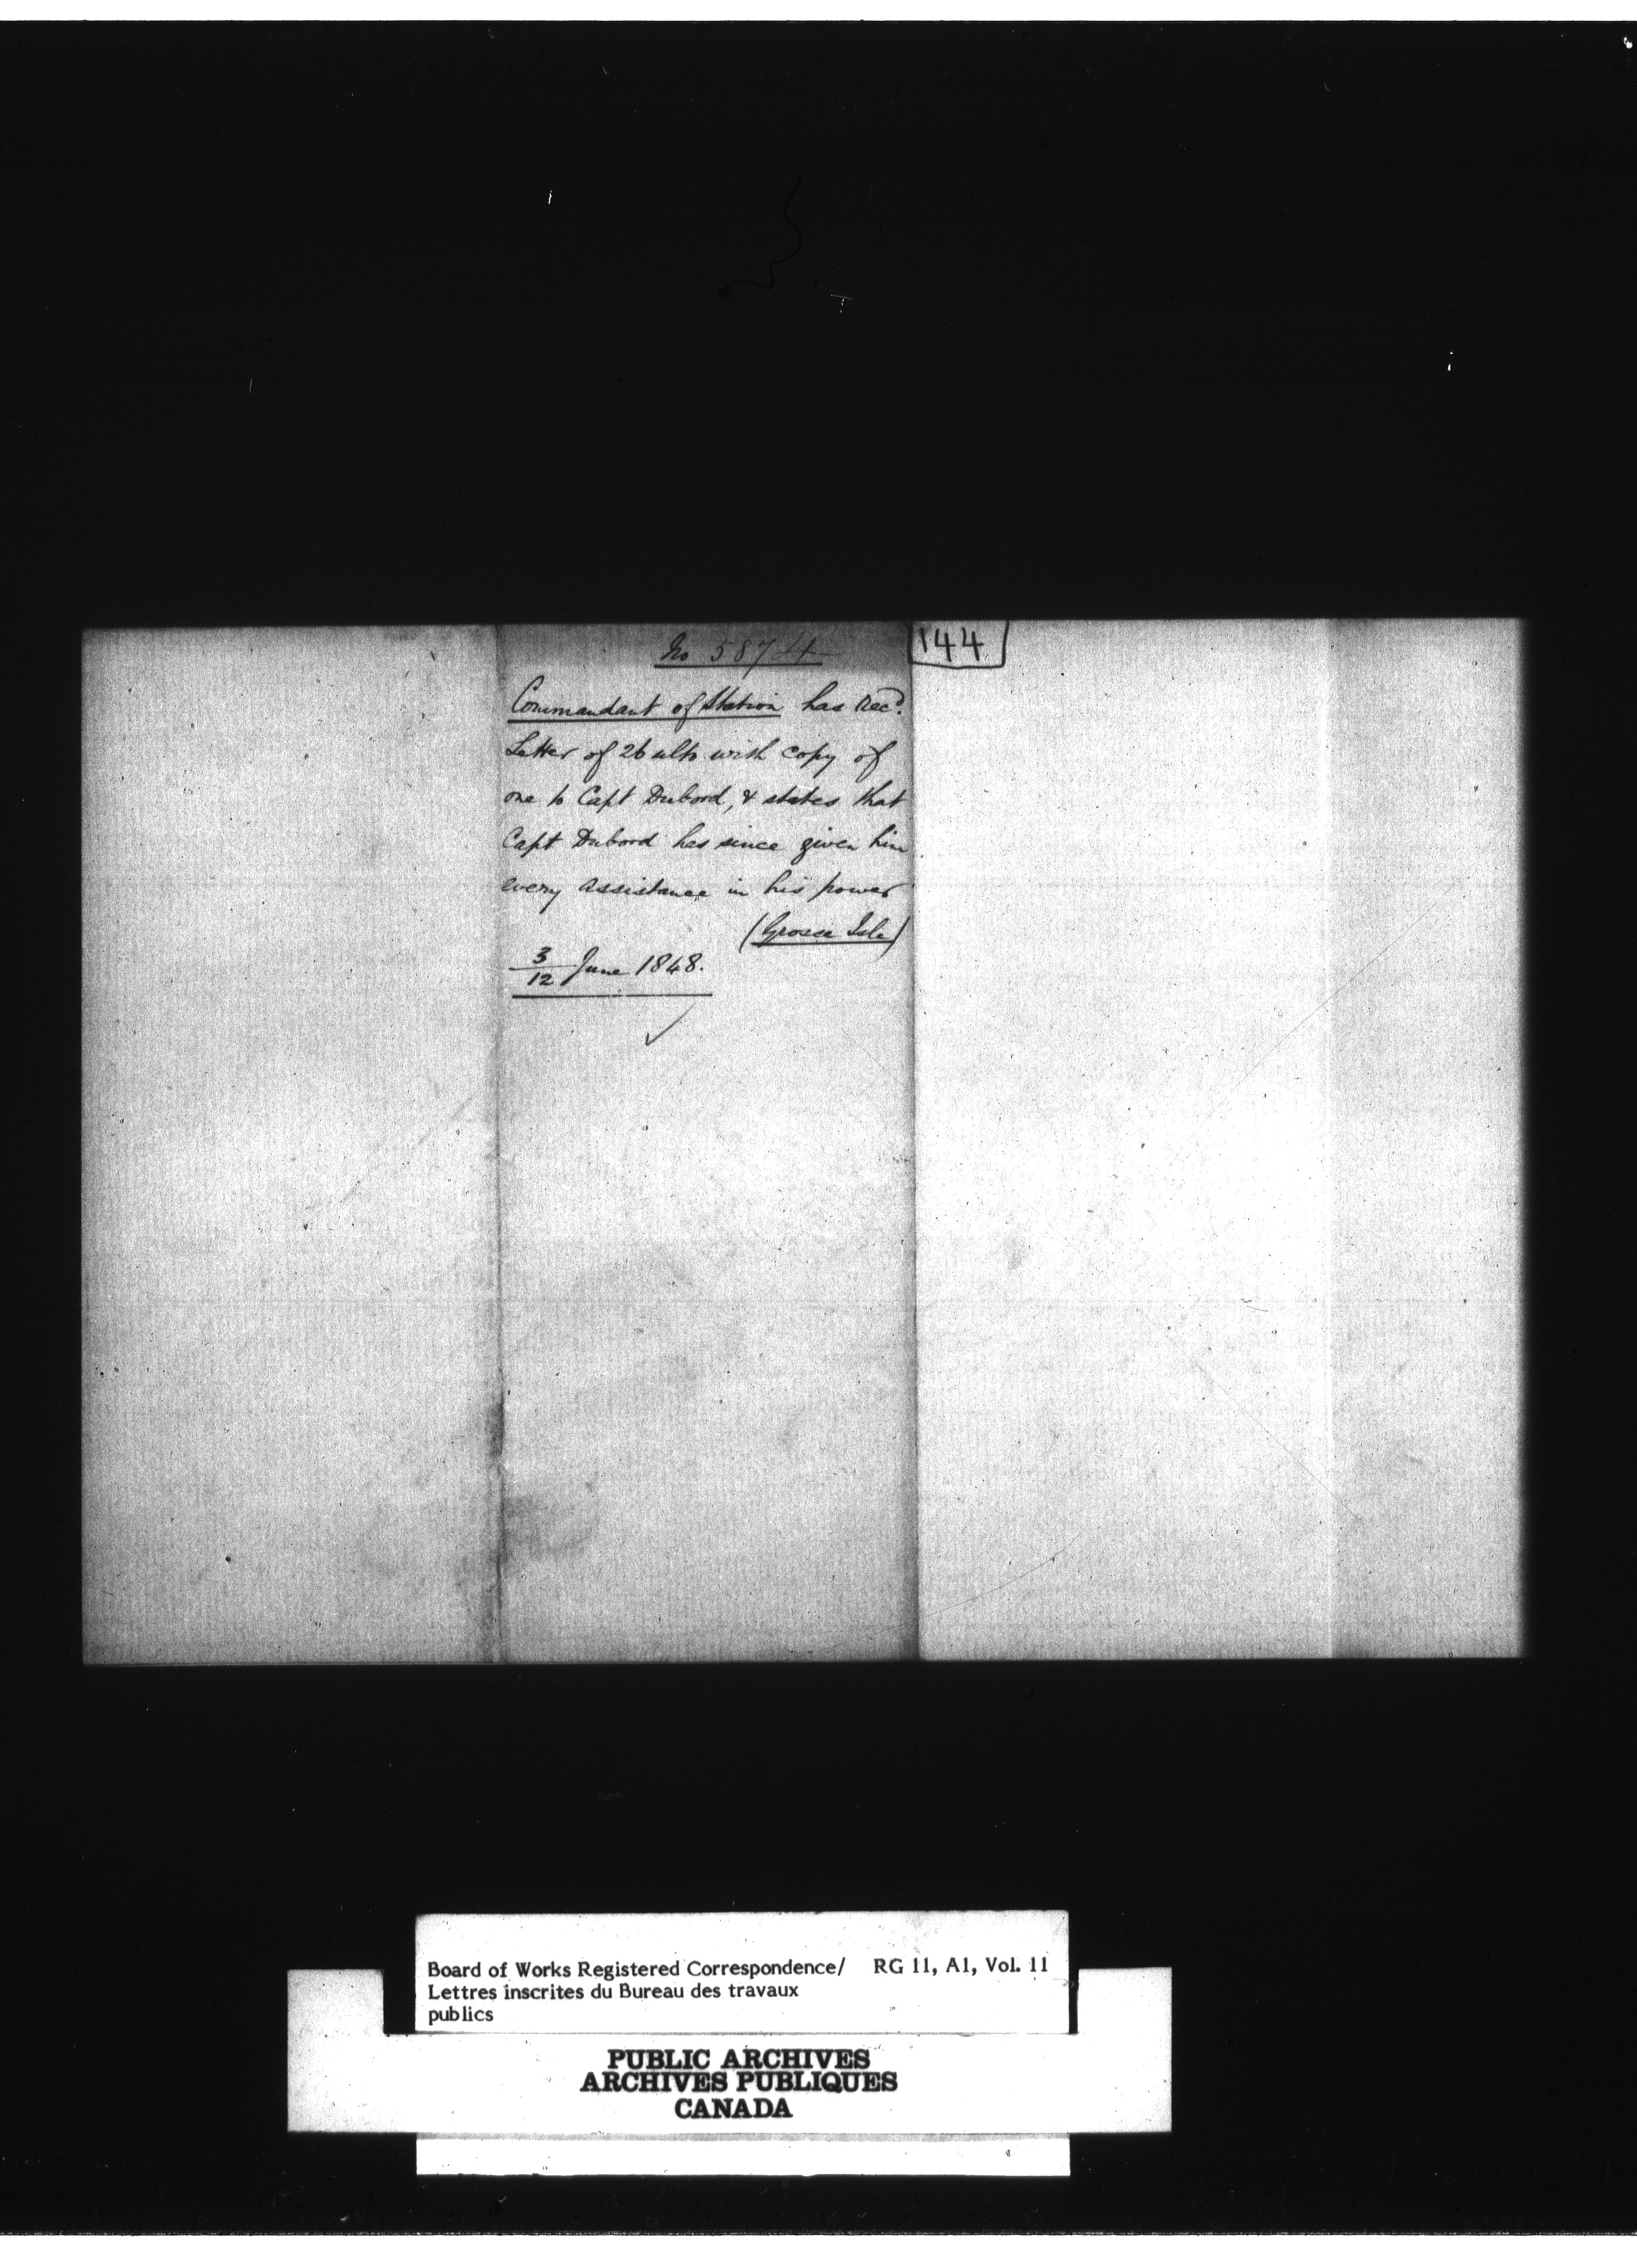 No 5874
144
Commandant of Station has Recd.
Letter of 26 ulto with copy of
one to Capt Dubord, & states that
Capt Dubord has since given him
every assistance in his power
(Grosse Isle)
3/12 June 1848.
Board of Works Registered Correspondence/ RG 11, A1, Vol. 11
Lettres inscrites du Bureau des travaux
publics
PUBLIC ARCHIVES
ARCHIVES PUBLIQUES
CANADA